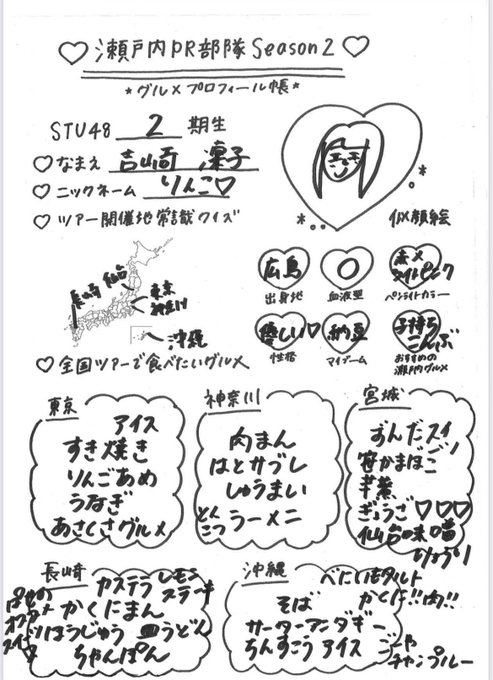 ♡ 瀬戸内PR部隊 Season2 ♡
*グルメプロフィール帳*
STU48 2 期生
♡ なまえ 吉崎 凜子
♡ ニックネーム りんこ♡
♡ ツアー開催地常識クイズ
似顔絵
長崎 仙台
東京
神奈川
沖縄
広島
出身地
O
血液型
赤×
ライトピンク
ペンライトカラー
優しい♡
性格
納豆
マイブーム
子持ち
こんぶ
おすすめの
瀬戸内グルメ
♡ 全国ツアーで食べたいグルメ
東京
アイス
すき焼き
りんごあめ
うなぎ
あさくさグルメ
神奈川
肉まん
はとサブレ
しゅうまい
とんこつラーメン
宮城
ずんだスイーツ
笹かまぼこ
芋煮
ぎょうざ♡♡♡
仙台味噌
りょうり
長崎
カステラ レモンステーキ
かくにまん
ほうじゅう 皿うどん
ちゃんぽん
沖縄
べにいもタルト
そば かくに!!肉!!
サーターアンダギー
ちんすこうアイス
ゴーヤ
チャンプルー